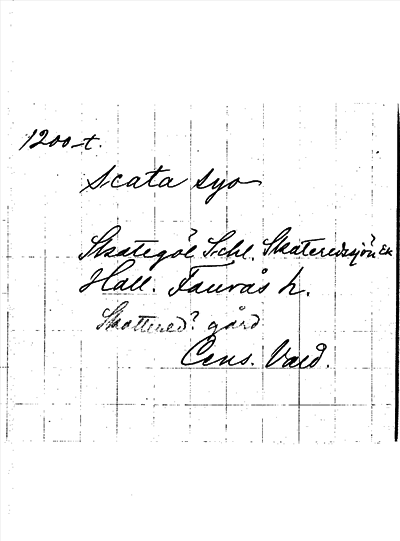 1200-t.
Scata syo
Skategöl Schl. Skateredssjön Ek
Hall. Faurås h.
Skattered? gård
Cens. Vald.